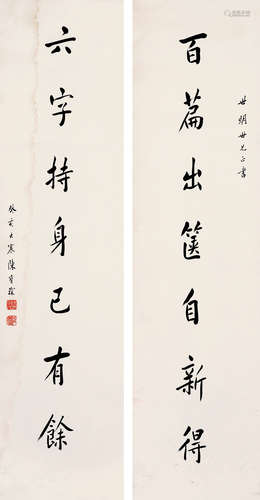 世朝世兄正書
百篇出篋自新得
六字持身已有餘
癸亥大寒陳寶琛